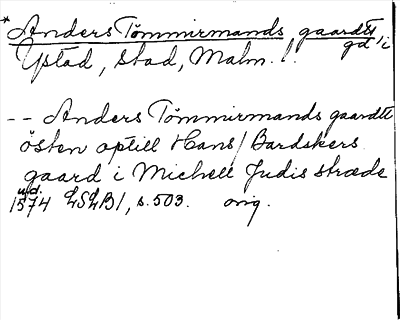 * Anders Tømmirmands gaardtt, i
gd
Ystad, stad, Malm. l.
-- Anders Tømmirmands gaardtt
östen optill Hans / Bardskers
gaard i Michell Judis stræde
u.d.
1574 LSLB1, s. 503. orig.